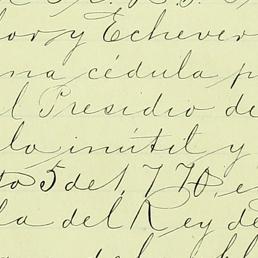 lor y Echever
na cédula p
l Presidio de
lo inútil y
to 5 de 1,770, e
la del Rey de